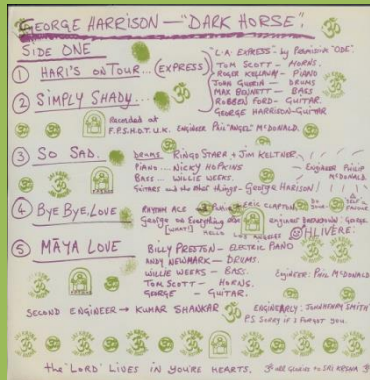 GEORGE HARRISON — "DARK HORSE".
SIDE ONE
① HARI'S ON TOUR... (EXPRESS)
"L.A. EXPRESS" - by Permission "ODE".
TOM SCOTT — HORNS.
ROGER KELLAWAY - PIANO
JOHN GUERIN — DRUMS
MAX BENNETT — BASS
ROBBEN FORD - GUITAR.
GEORGE HARRISON - GUITAR
② SIMPLY SHADY...
Recorded at
F.P.S.H.O.T. U.K. ENGINEER Phil "ANGEL" McDONALD.
③ SO SAD.
DRUMS RINGO STARR + JIM KELTNER.
PIANO... NICKY HOPKINS
BASS... WILLIE WEEKS.
GUITARS and the other things - George HARISON!
ENGINEER PHILIP
McDONALD.
④ BYE BYE, LOVE
RHYTHM ACE ERIC CLAPTON
George on Everything else
[WHAT] HELLO LOS ANGELES
engineer
OHLIVERE:
⑤ MĀYA LOVE
BILLY PRESTON - ELECTRIC PIANO
ANDY NEWMARK — DRUMS.
WILLIE WEEKS - BASS.
TOM SCOTT — HORNS.
GEORGE — GUITAR.
ENGINEER: PHIL McDONALD
SECOND ENGINEER → KUMAR SHANKAR
ENGINEARLY: JOHNHENRY SMITH
P.S SORRY IF I FORGOT YOU.
the "LORD" LIVES IN YOU'RE HEARTS. ॐ all Glories to SRI KRSNA ॐ